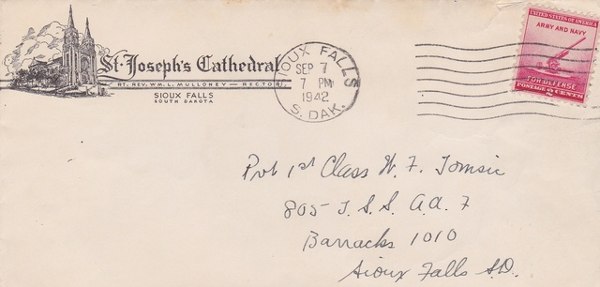 St. Joseph's Cathedral
RT. REV. WM. L. MULLONEY — RECTOR
SIOUX FALLS
SOUTH DAKOTA
SIOUX FALLS
SEP 7
7 PM
1942
S. DAK.
UNITED STATES OF AMERICA
ARMY AND NAVY
FOR DEFENSE
POSTAGE 2 CENTS
Pvt 1st Class W. F. Tomsic
805 T. S. S. A.A. F
Barracks 1010
Sioux Falls S.D.